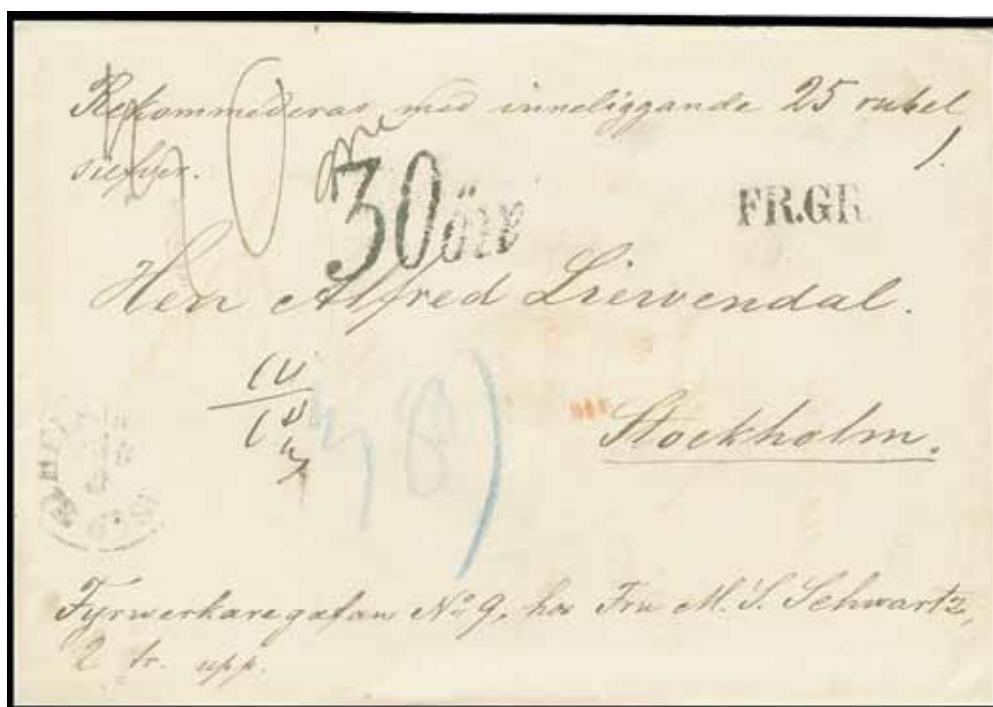 Rekommederas med inneliggande 25 rubel
silfver.
30 öre
FR.GR.
Herr Alfred Liewendal.
Stockholm.
Fyrwerkaregatan No 9, hos Fru M. S. Schwartz,
2 tr. upp.